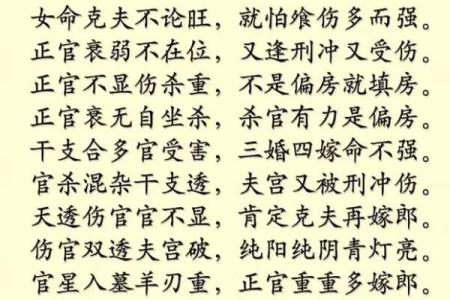 女命克夫不论旺，就怕飧伤多而强。
正官衰弱不在位，又逢刑冲又受伤。
正官不显伤杀重，不是偏房就填房。
正官衰无自坐杀，杀官有力是偏房。
干支合多官受害，三婚四嫁命不强。
官杀混杂干支透，夫宫又被刑冲伤。
天透伤官官不显，肯定克夫再嫁郎。
伤官双透夫宫破，纯阳纯阴青灯亮。
官星入墓羊刃重，正官重重多嫁郎。